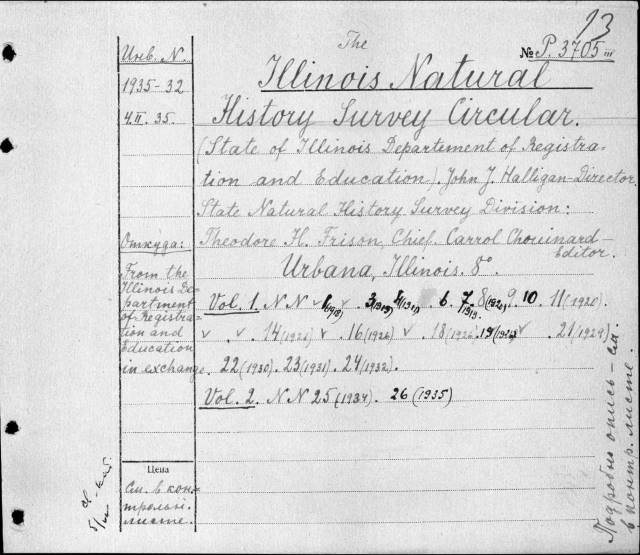 13
№ P. 3705 III
The
Illinois Natural
History Survey Circular.
(State of Illinois Departement of Registra-
tion and Education). John J. Halligan-Director
State Natural History Survey Division:
Theodore H. Frison, Chief. Carrol Chouinard-
Editor.
Urbana, Illinois. 8°
Vol. 1. N N 3(1919) 6. 7 1919. 8(1920) 9. 10. 11(1920).
14(1926) 16(1926) 18(1926). 19(1926) 21(1929).
22(1930). 23(1931). 24(1932).
Vol. 2. N N 25(1934). 26(1935)
Инв. N.
1935-32
4.II.35.
Откуда:
From the
Illinois De-
partment
of Registra-
tion and
Education
in exchange
Цена
См. в кон-
трольн.
листе.
Подробно опись - см.
в контр. листе.